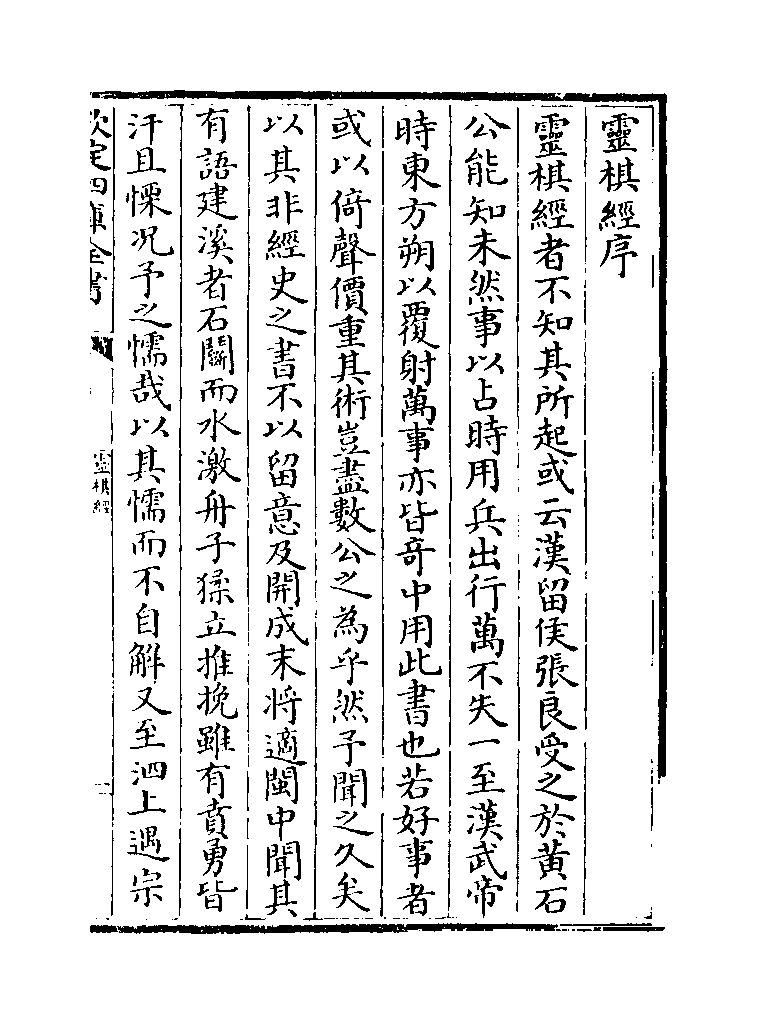 靈棋經序
靈棋經者不知其所起或云漢留侯張良受之於黄石
公能知未然事以占時用兵出行萬不失一至漢武帝
時東方朔以覆射萬事亦皆竒中用此書也若好事者
或以倚聲價重其術豈盡數公之為乎然予聞之久矣
以其非經史之書不以留意及開成末將適閩中聞其
有語建溪者石鬭而水激舟子猱立推挽雖有賁勇皆
汗且慄况予之懦哉以其懦而不自解又至泗上遇宗
欽定四庫全書
靈棋經
一